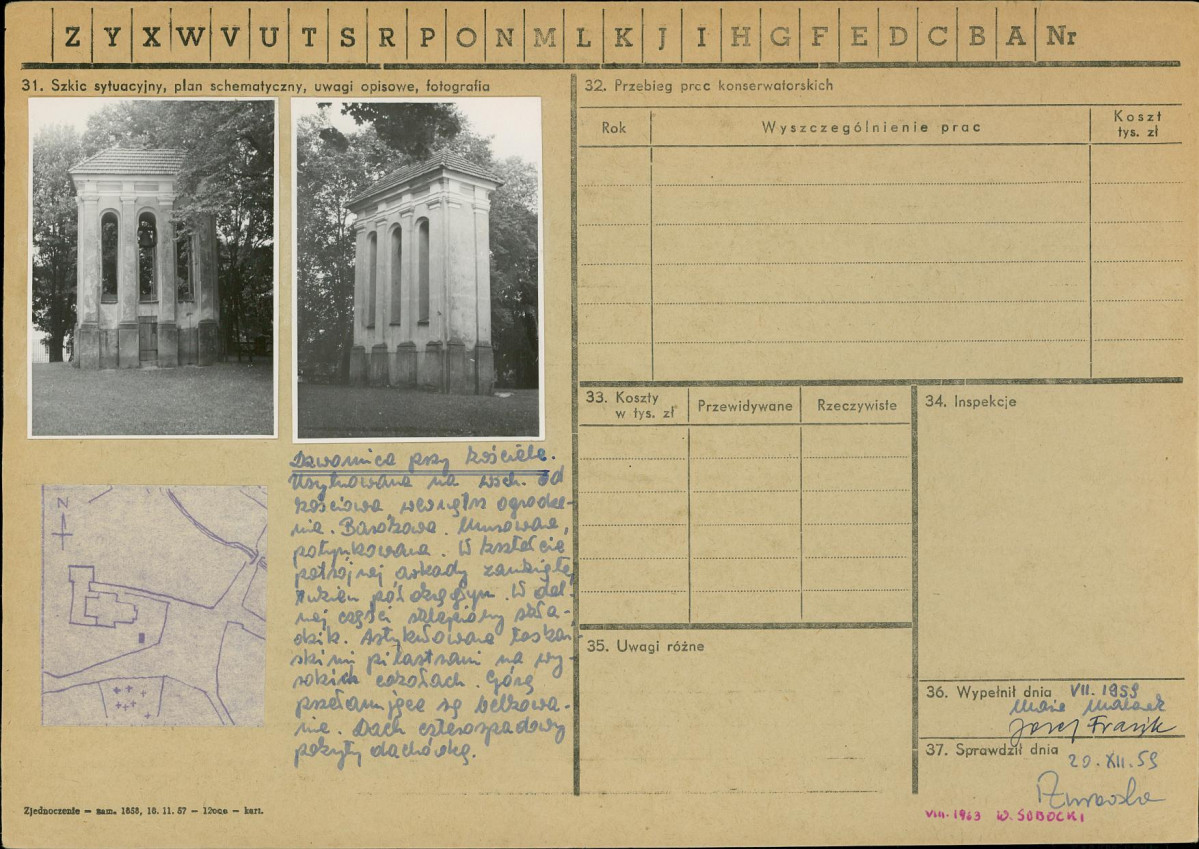 Z Y X W V U T S R P O N M L K J I H G F E D C B A Nr
31. Szkic sytuacyjny, plan schematyczny, uwagi opisowe, fotografia
N
Dzwonnica przy kościele.
Usytuowana na wsch. od
kościoła wewnątrz ogrodze-
nia. Barokowa. Murowana,
potynkowana. W kształcie
potrójnej arkady zamkniętej
łukiem półokrągłym. W dol-
nej części sklepiony skła-
dzik. Artykułowana toskań-
skimi pilastrami na wy-
sokich cokołach. Górą
przełamujące się belkowa-
nie. Dach czterospadowy
pokryty dachówką.
Zjednoczenie — zam. 1858, 16. 11. 57 — 12000 — kart.
32. Przebieg prac konserwatorskich
Rok
Wyszczególnienie prac
Koszt
tys. zł
33. Koszty
w tys. zł
Przewidywane
Rzeczywiste
34. Inspekcje
35. Uwagi różne
36. Wypełnił dnia VII. 1959
Józef Frazik
37. Sprawdził dnia
20. XII. 59
VIII. 1963 W. SOBOCKI